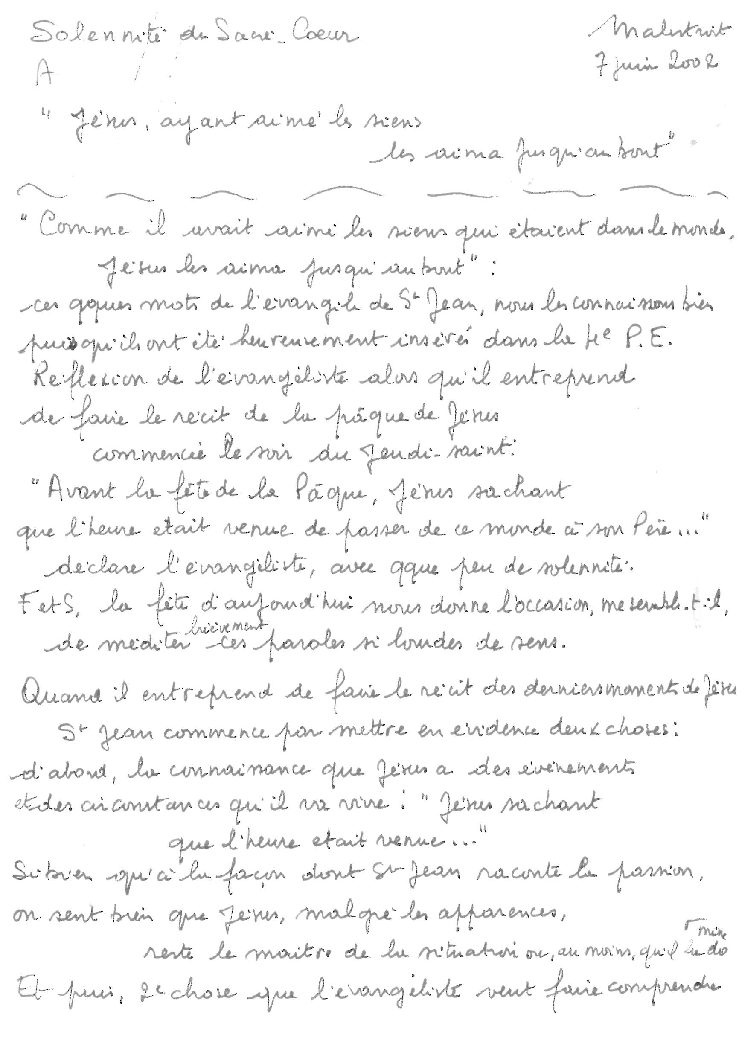 Solennité du Sacré-Coeur
Malestroit
7 juin 2002
A
" Jésus, ayant aimé les siens
les aima jusqu'au bout "
" Comme il avait aimé les siens qui étaient dans le monde,
Jésus les aima jusqu'au bout " :
ces qques mots de l'évangile de St Jean, nous les connaissons bien
puisqu'ils ont été heureusement insérés dans la 4e P.E.
Réflexion de l'évangéliste alors qu'il entreprend
de faire le récit de la pâque de Jésus
commencée le soir du Jeudi-saint:
" Avant la fête de la Pâque, Jésus sachant
que l'heure était venue de passer de ce monde à son Père ... "
déclare l'évangéliste, avec qque peu de solennité.
F et S, la fête d'aujourd'hui nous donne l'occasion, me semble-t-il,
de méditer brièvement ces paroles si lourdes de sens.
Quand il entreprend de faire le récit des derniers moments de Jésus
St Jean commence par mettre en évidence deux choses :
d'abord, la connaissance que Jésus a des événements
et des circonstances qu'il va vivre : " Jésus sachant
que l'heure était venue ... "
Si bien qu'à la façon dont St Jean raconte la passion,
on sent bien que Jésus, malgré les apparences,
reste le maître de la situation ou, au moins, qu'il la domine
Et puis, 2e chose que l'évangéliste veut faire comprendre